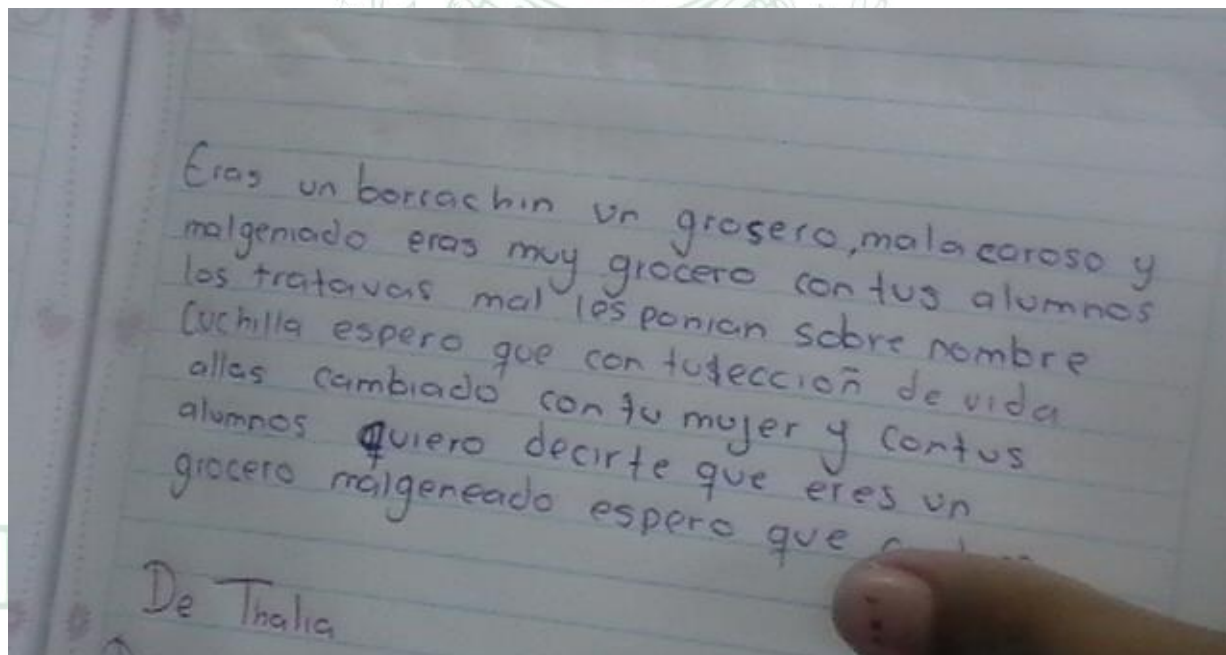 Eras un borrachin un grosero, mala caroso y
malgeniado eras muy grocero con tus alumnos
los tratavas mal les ponian sobre nombre
Cuchilla espero que con tu lección de vida
allas cambiado con tu mujer y contus
alumnos quiero decirte que eres un
grocero malgeneado espero que
De Thalia